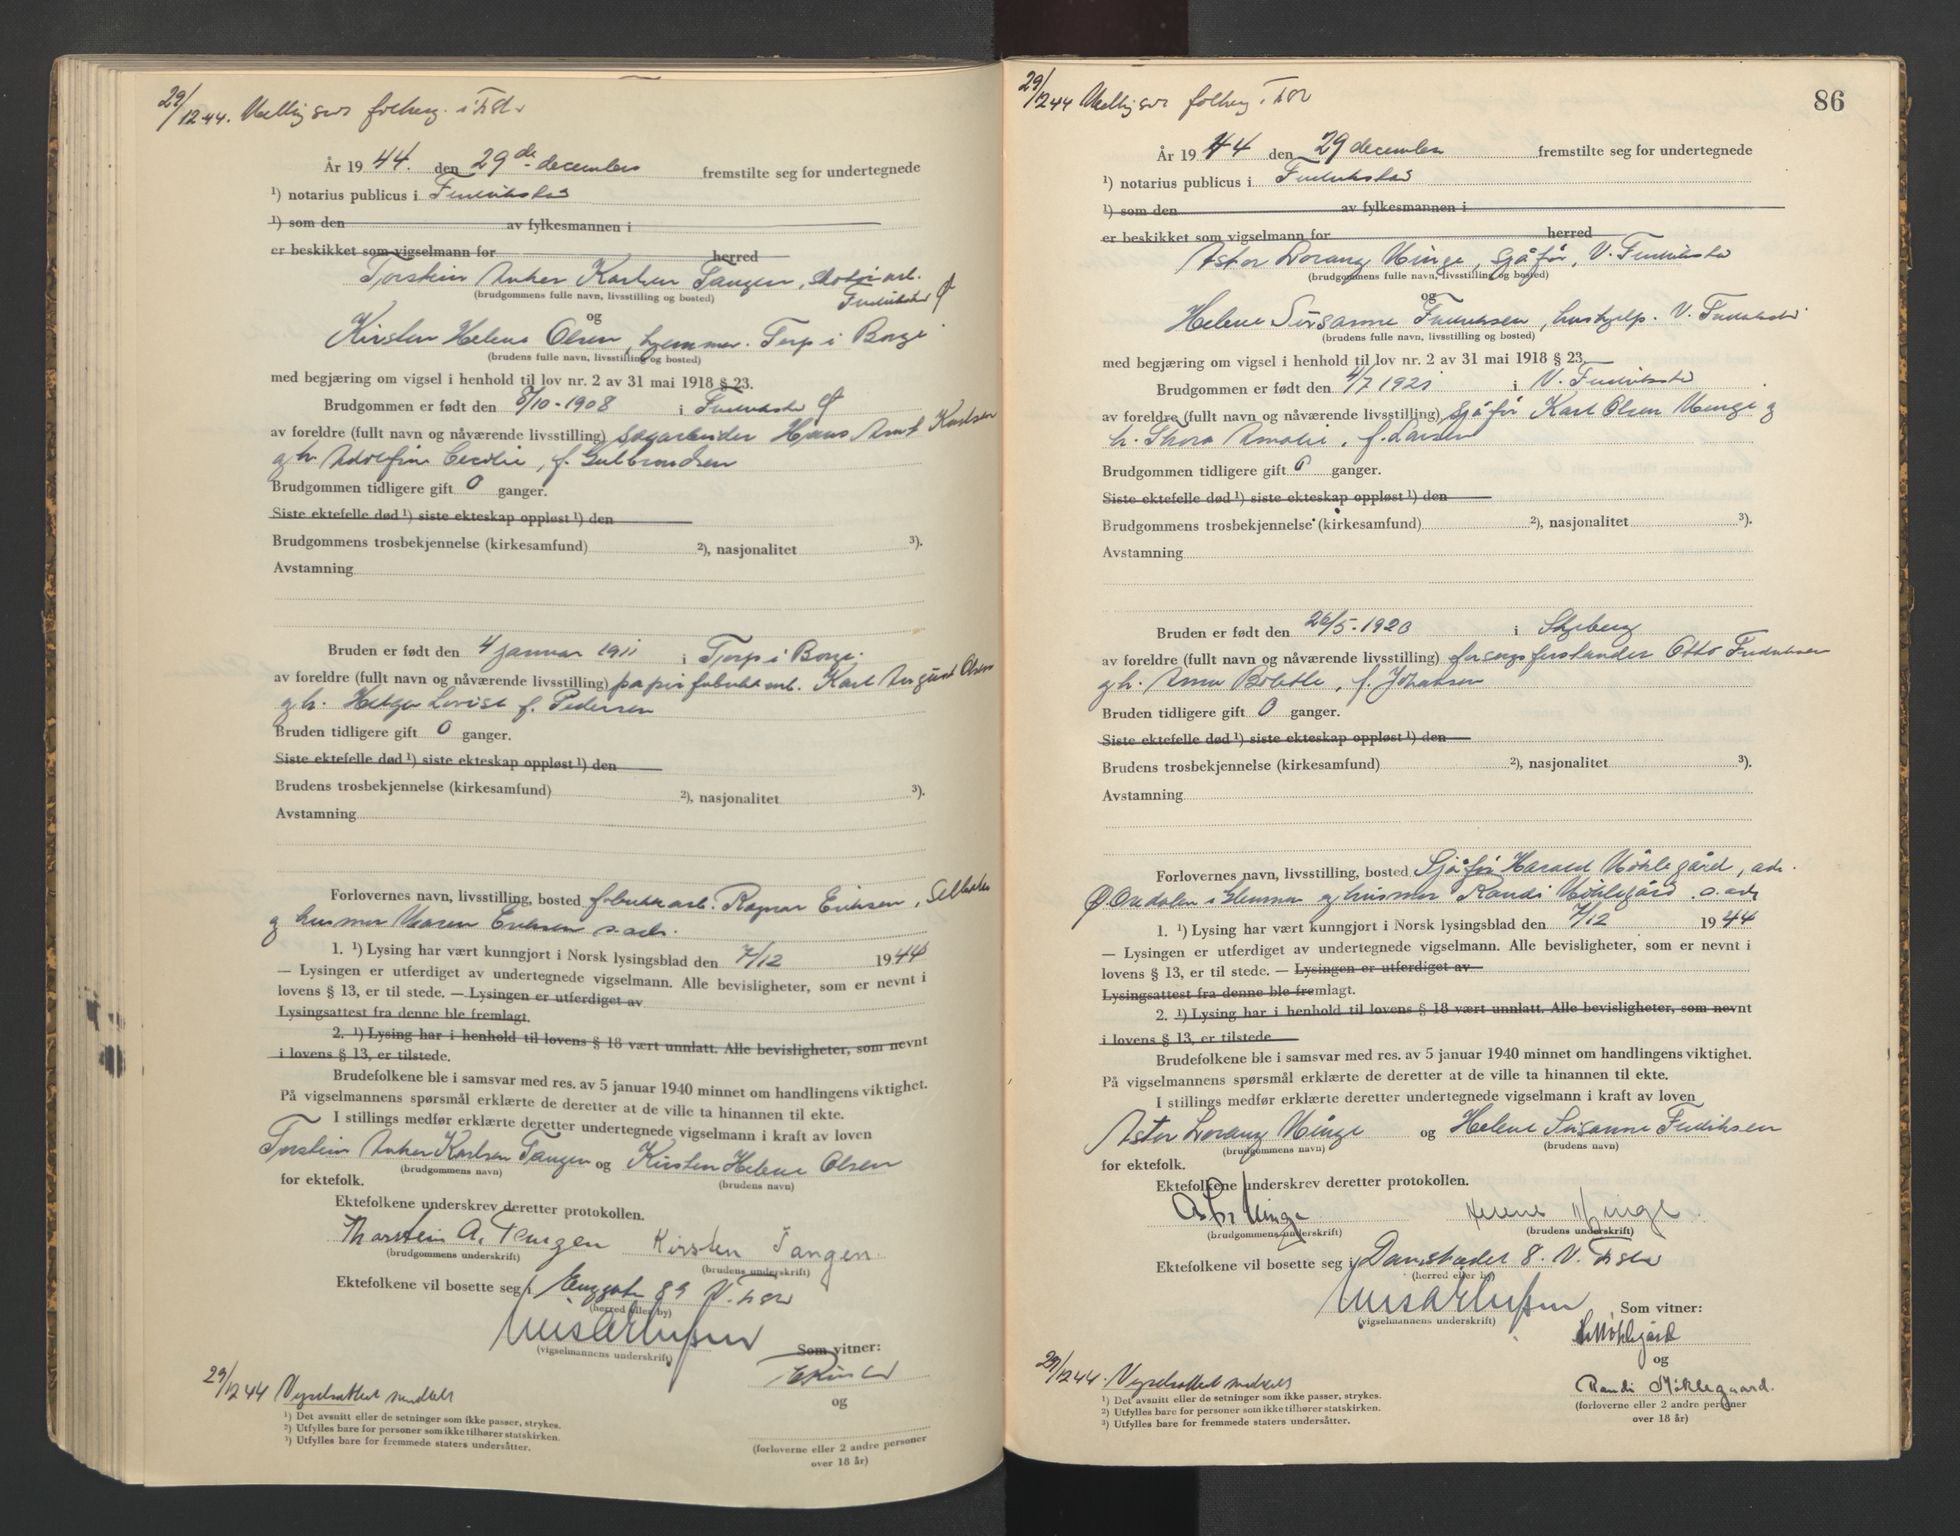 29/12 44. folkereg. i
År 1944. den 29de december fremstilte seg for undertegnede
¹) notarius publicus i Fredrikstad
¹) som den av fylkesmannen i
er beskikket som vigselmann for herred
Torstein Anker Karlsen Tangen,
Fredrikstad
(brudgommens fulle navn, livsstilling og bosted)
og
Kirsten Helene Olsen, hjemmev. Torp i Borge
(brudens fulle navn, livsstilling og bosted)
med begjæring om vigsel i henhold til lov nr. 2 av 31 mai 1918 § 23.
Brudgommen er født den 8/10-1908 i Fredrikstad
av foreldre (fullt navn og nåværende livsstilling) sagarbeider Hans Arnt Karlsen
og h. Adolfine Cecilie, f. Gulbrandsen
Brudgommen tidligere gift 0 ganger.
Siste ektefelle død ¹) siste ekteskap oppløst ¹) den
Brudgommens trosbekjennelse (kirkesamfund) ²), nasjonalitet ³).
Avstamning
Bruden er født den 4 januar 1911 i Torp i Borge.
av foreldre (fullt navn og nåværende livsstilling) papirfabrikkarb. Karl August Olsen
og h. Helga Lovise f. Pedersen
Bruden tidligere gift 0 ganger.
Siste ektefelle død ¹) siste ekteskap oppløst ¹) den
Brudens trosbekjennelse (kirkesamfund) ²), nasjonalitet ³).
Avstamning
Forlovernes navn, livsstilling, bosted fabrikkarb. Ragnar Eriksen, Selbak
og husmor Maren Eriksen s. adr.
1. ¹) Lysing har vært kunngjort i Norsk lysingsblad den 7/12 1944
— Lysingen er utferdiget av undertegnede vigselmann. Alle bevisligheter, som er nevnt i
lovens § 13, er til stede. — Lysingen er utferdiget av
Lysingsattest fra denne ble fremlagt.
2. ¹) Lysing har i henhold til lovens § 18 vært unnlatt. Alle bevisligheter, som nevnt
i lovens § 13, er tilstede.
Brudefolkene ble i samsvar med res. av 5 januar 1940 minnet om handlingens viktighet.
På vigselmannens spørsmål erklærte de deretter at de ville ta hinannen til ekte.
I stillings medfør erklærte deretter undertegnede vigselmann i kraft av loven
Torstein Anker Karlsen Tangen og Kirsten Helene Olsen
(brudgommens navn) (brudens navn)
for ektefolk.
Ektefolkene underskrev deretter protokollen.
Thorstein A. Tangen Kirsten Tangen
(brudgommens underskrift) (brudens underskrift)
Ektefolkene vil bosette seg i Enggata 89 V.
(herred eller by)
(vigselmannens underskrift)
Som vitner:
og
29/12 44 Vigselsattest meddelt
(forloverne eller 2 andre personer
over 18 år)
¹) Det avsnitt eller de setninger som ikke passer, strykes.
²) Utfylles bare for personer som ikke tilhører statskirken.
³) Utfylles bare for fremmede staters undersåtter.
86
29/12 44 folkereg. i
År 1944 den 29 december fremstilte seg for undertegnede
¹) notarius publicus i Fredrikstad
¹) som den av fylkesmannen i
er beskikket som vigselmann for herred
Astor Lorang Minge, sjåfør, V. Fredrikstad
(brudgommens fulle navn, livsstilling og bosted)
og
Helene Susanne Fredriksen, hushjelp. V. Fredrikstad
(brudens fulle navn, livsstilling og bosted)
med begjæring om vigsel i henhold til lov nr. 2 av 31 mai 1918 § 23.
Brudgommen er født den 4/7 1921 i V. Fredrikstad
av foreldre (fullt navn og nåværende livsstilling) sjåfør Karl Olsen Minge og
h. Thora Amalie, f. Larsen
Brudgommen tidligere gift 0 ganger.
Siste ektefelle død ¹) siste ekteskap oppløst ¹) den
Brudgommens trosbekjennelse (kirkesamfund) ²), nasjonalitet ³).
Avstamning
Bruden er født den 26/5-1920 i Skjeberg
av foreldre (fullt navn og nåværende livsstilling) forsorgsforstander Otto Fredriksen
og h. Anna Bolette, f. Johansen
Bruden tidligere gift 0 ganger.
Siste ektefelle død ¹) siste ekteskap oppløst ¹) den
Brudens trosbekjennelse (kirkesamfund) ²), nasjonalitet ³).
Avstamning
Forlovernes navn, livsstilling, bosted Sjåfør Harald Møklegård, adr.
i Glemmen og husmor Randi Møklegård s. adr
1. ¹) Lysing har vært kunngjort i Norsk lysingsblad den 7/12 1944
— Lysingen er utferdiget av undertegnede vigselmann. Alle bevisligheter, som er nevnt i
lovens § 13, er til stede. — Lysingen er utferdiget av
Lysingsattest fra denne ble fremlagt.
2. ¹) Lysing har i henhold til lovens § 18 vært unnlatt. Alle bevisligheter, som nevnt
i lovens § 13, er tilstede
Brudefolkene ble i samsvar med res. av 5 januar 1940 minnet om handlingens viktighet.
På vigselmannens spørsmål erklærte de deretter at de ville ta hinannen til ekte.
I stillings medfør erklærte deretter undertegnede vigselmann i kraft av loven
Astor Lorang Minge og Helene Susanne Fredriksen
(brudgommens navn) (brudens navn)
for ektefolk.
Ektefolkene underskrev deretter protokollen.
Astor Minge Helene Minge.
(brudgommens underskrift) (brudens underskrift)
Ektefolkene vil bosette seg i Damstredet 8. V.
(herred eller by)
(vigselmannens underskrift)
Som vitner:
H. Møklegård
og
Randi Møklegaard.
(forloverne eller 2 andre personer
over 18 år)
29/12 44. Vigselsattest meddelt
¹) Det avsnitt eller de setninger som ikke passer, strykes.
²) Utfylles bare for personer som ikke tilhører statskirken.
³) Utfylles bare for fremmede staters undersåtter.